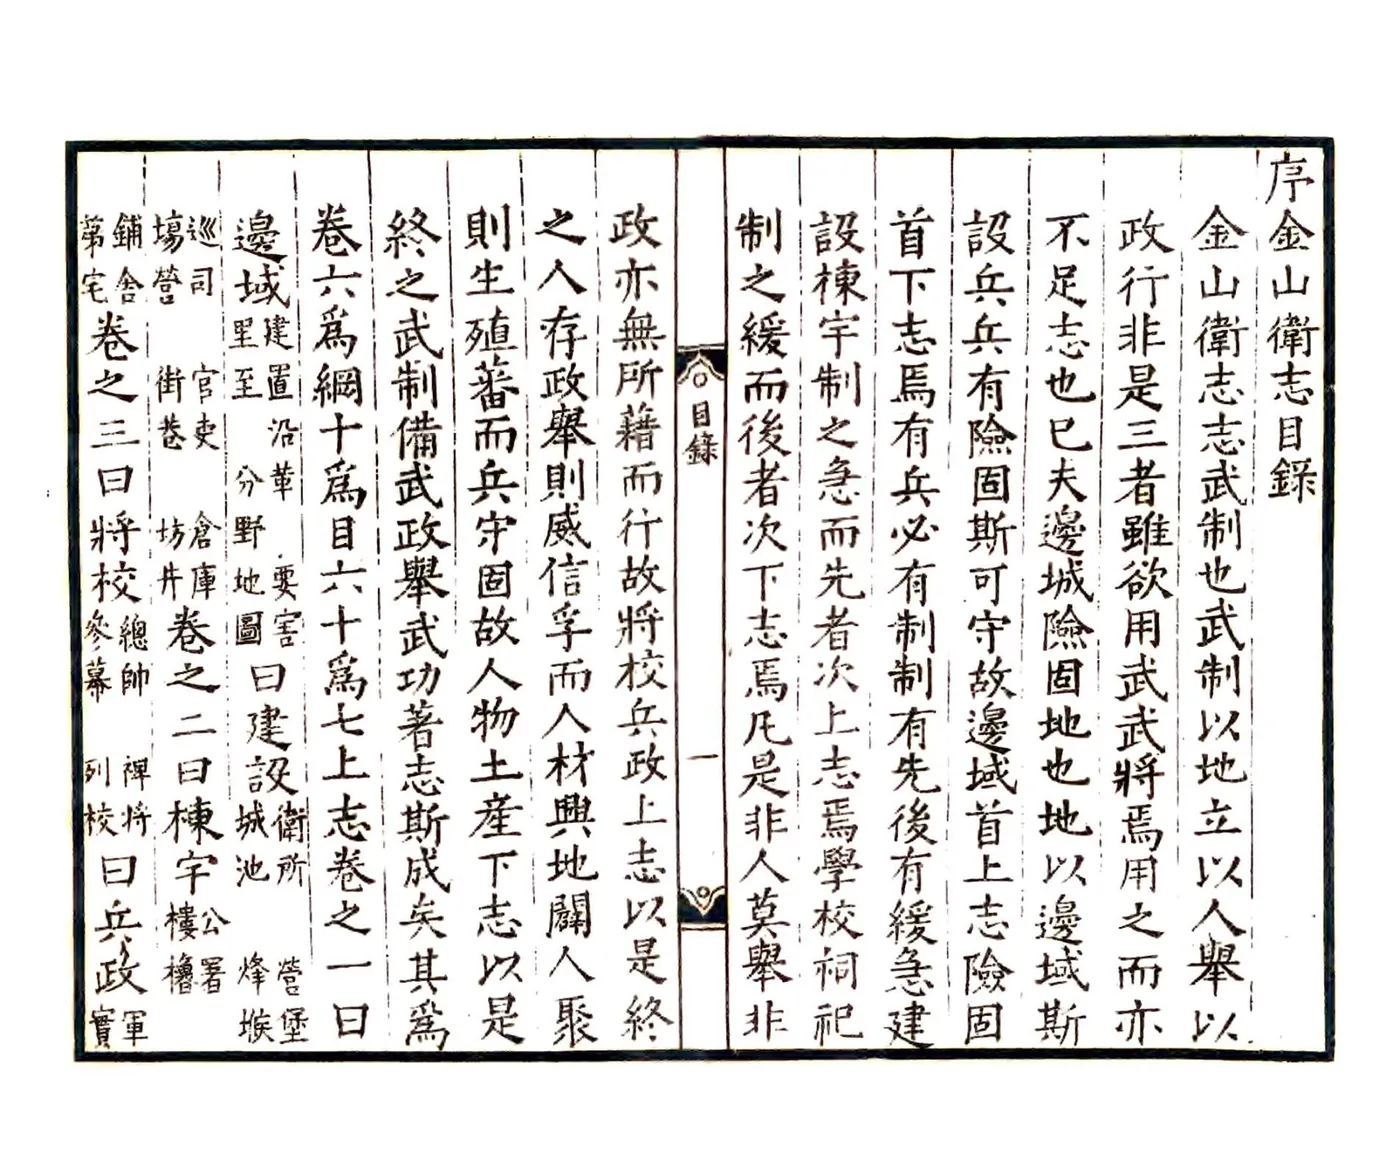 序金山衛志目錄
金山衛志志武制也武制以地立以人舉以
政行非是三者雖欲用武武將焉用之而亦
不足志也已夫邊城險固地也地以邊域斯
設兵兵有險固斯可守故邊域首上志險固
首下志焉有兵必有制制有先後有緩急建
設棟宇制之急而先者次上志焉學校祠祀
制之緩而後者次下志焉凡是非人莫舉非
目錄
一
政亦無所藉而行故將校兵政上志以是終
之人存政舉則威信孚而人材興地闢人聚
則生殖蕃而兵守固故人物土産下志以是
終之武制備武政舉武功著志斯成矣其爲
卷六爲綱十爲目六十爲七上志卷之一曰
邊域 建置沿革 要害 里至 分野 地圖 曰建設 衛所 營堡 城池 烽堠
巡司 官吏 倉庫 塲營 街巷 坊井 卷之二曰棟宇 公署 樓櫓
鋪舍 第宅 卷之三曰將校 總帥 裨將 參幕 列校 曰兵政 軍實